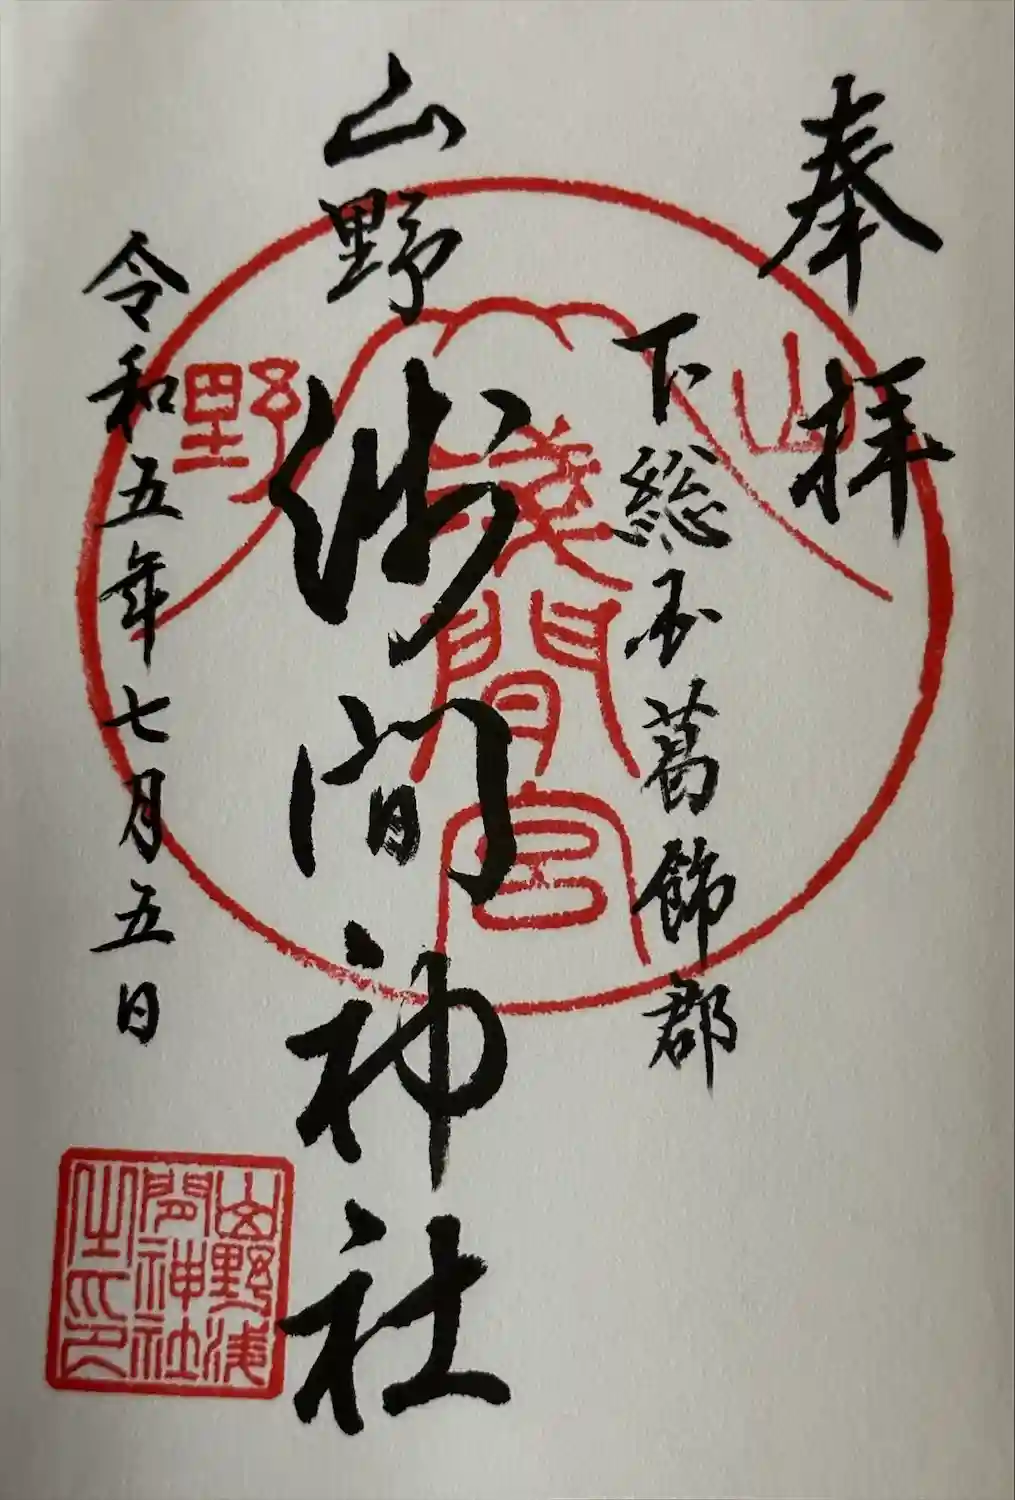 奉拝
下総国葛飾郡
山野
浅間神社
令和五年七月五日
山
野
淺間宮
山野浅
間神社
之印